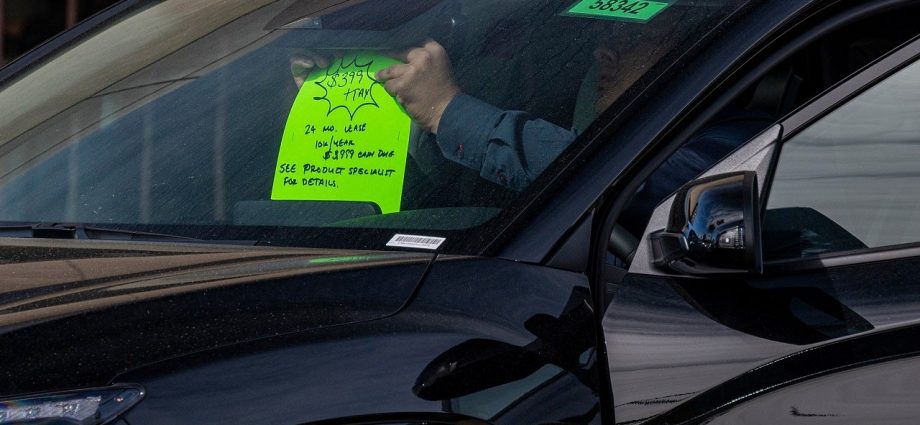 58342
$399
+TAX
24 MO. LEASE
10K/YEAR
CASH DUE
SEE PRODUCT SPECIALIST
FOR DETAILS.